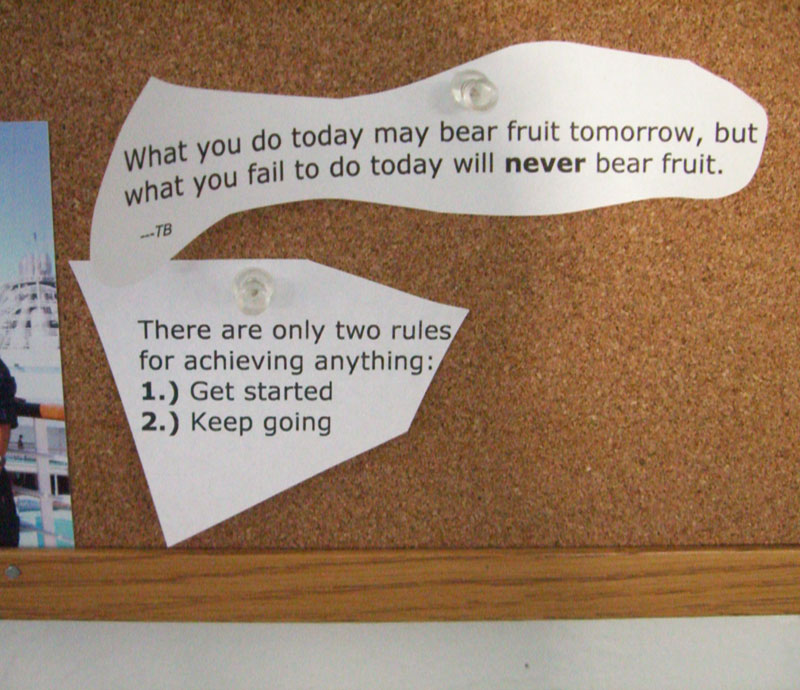 What you do today may bear fruit tomorrow, but
what you fail to do today will never bear fruit.
---TB
There are only two rules
for achieving anything:
1.) Get started
2.) Keep going